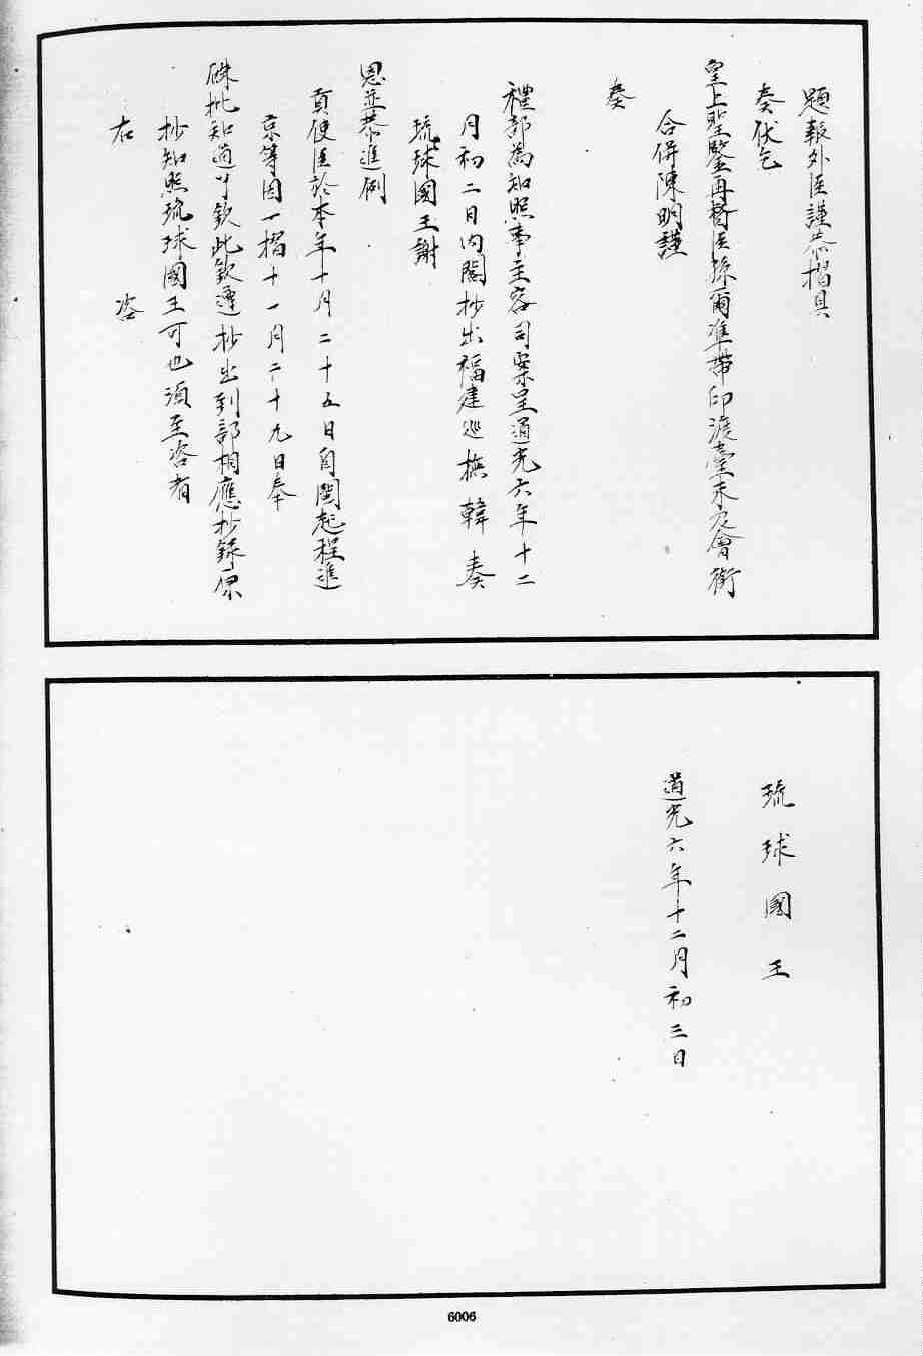 題報外臣謹恭摺具
奏伏乞
皇上聖鑒再督臣孫爾準帶印渡臺未及會銜
合併陳明謹
奏
禮部為知照事主客司案呈道光六年十二
月初二日內閣抄出福建巡撫韓奏
琉球國王謝
恩並恭進例
貢使臣於本年十月二十五日自閩起程進
京等因一摺十一月二十九日奉
硃批知道了欽此欽遵抄出到部相應抄錄原
抄知照琉球國王可也須至咨者
右 咨
琉球國王
道光六年十二月初三日
6006